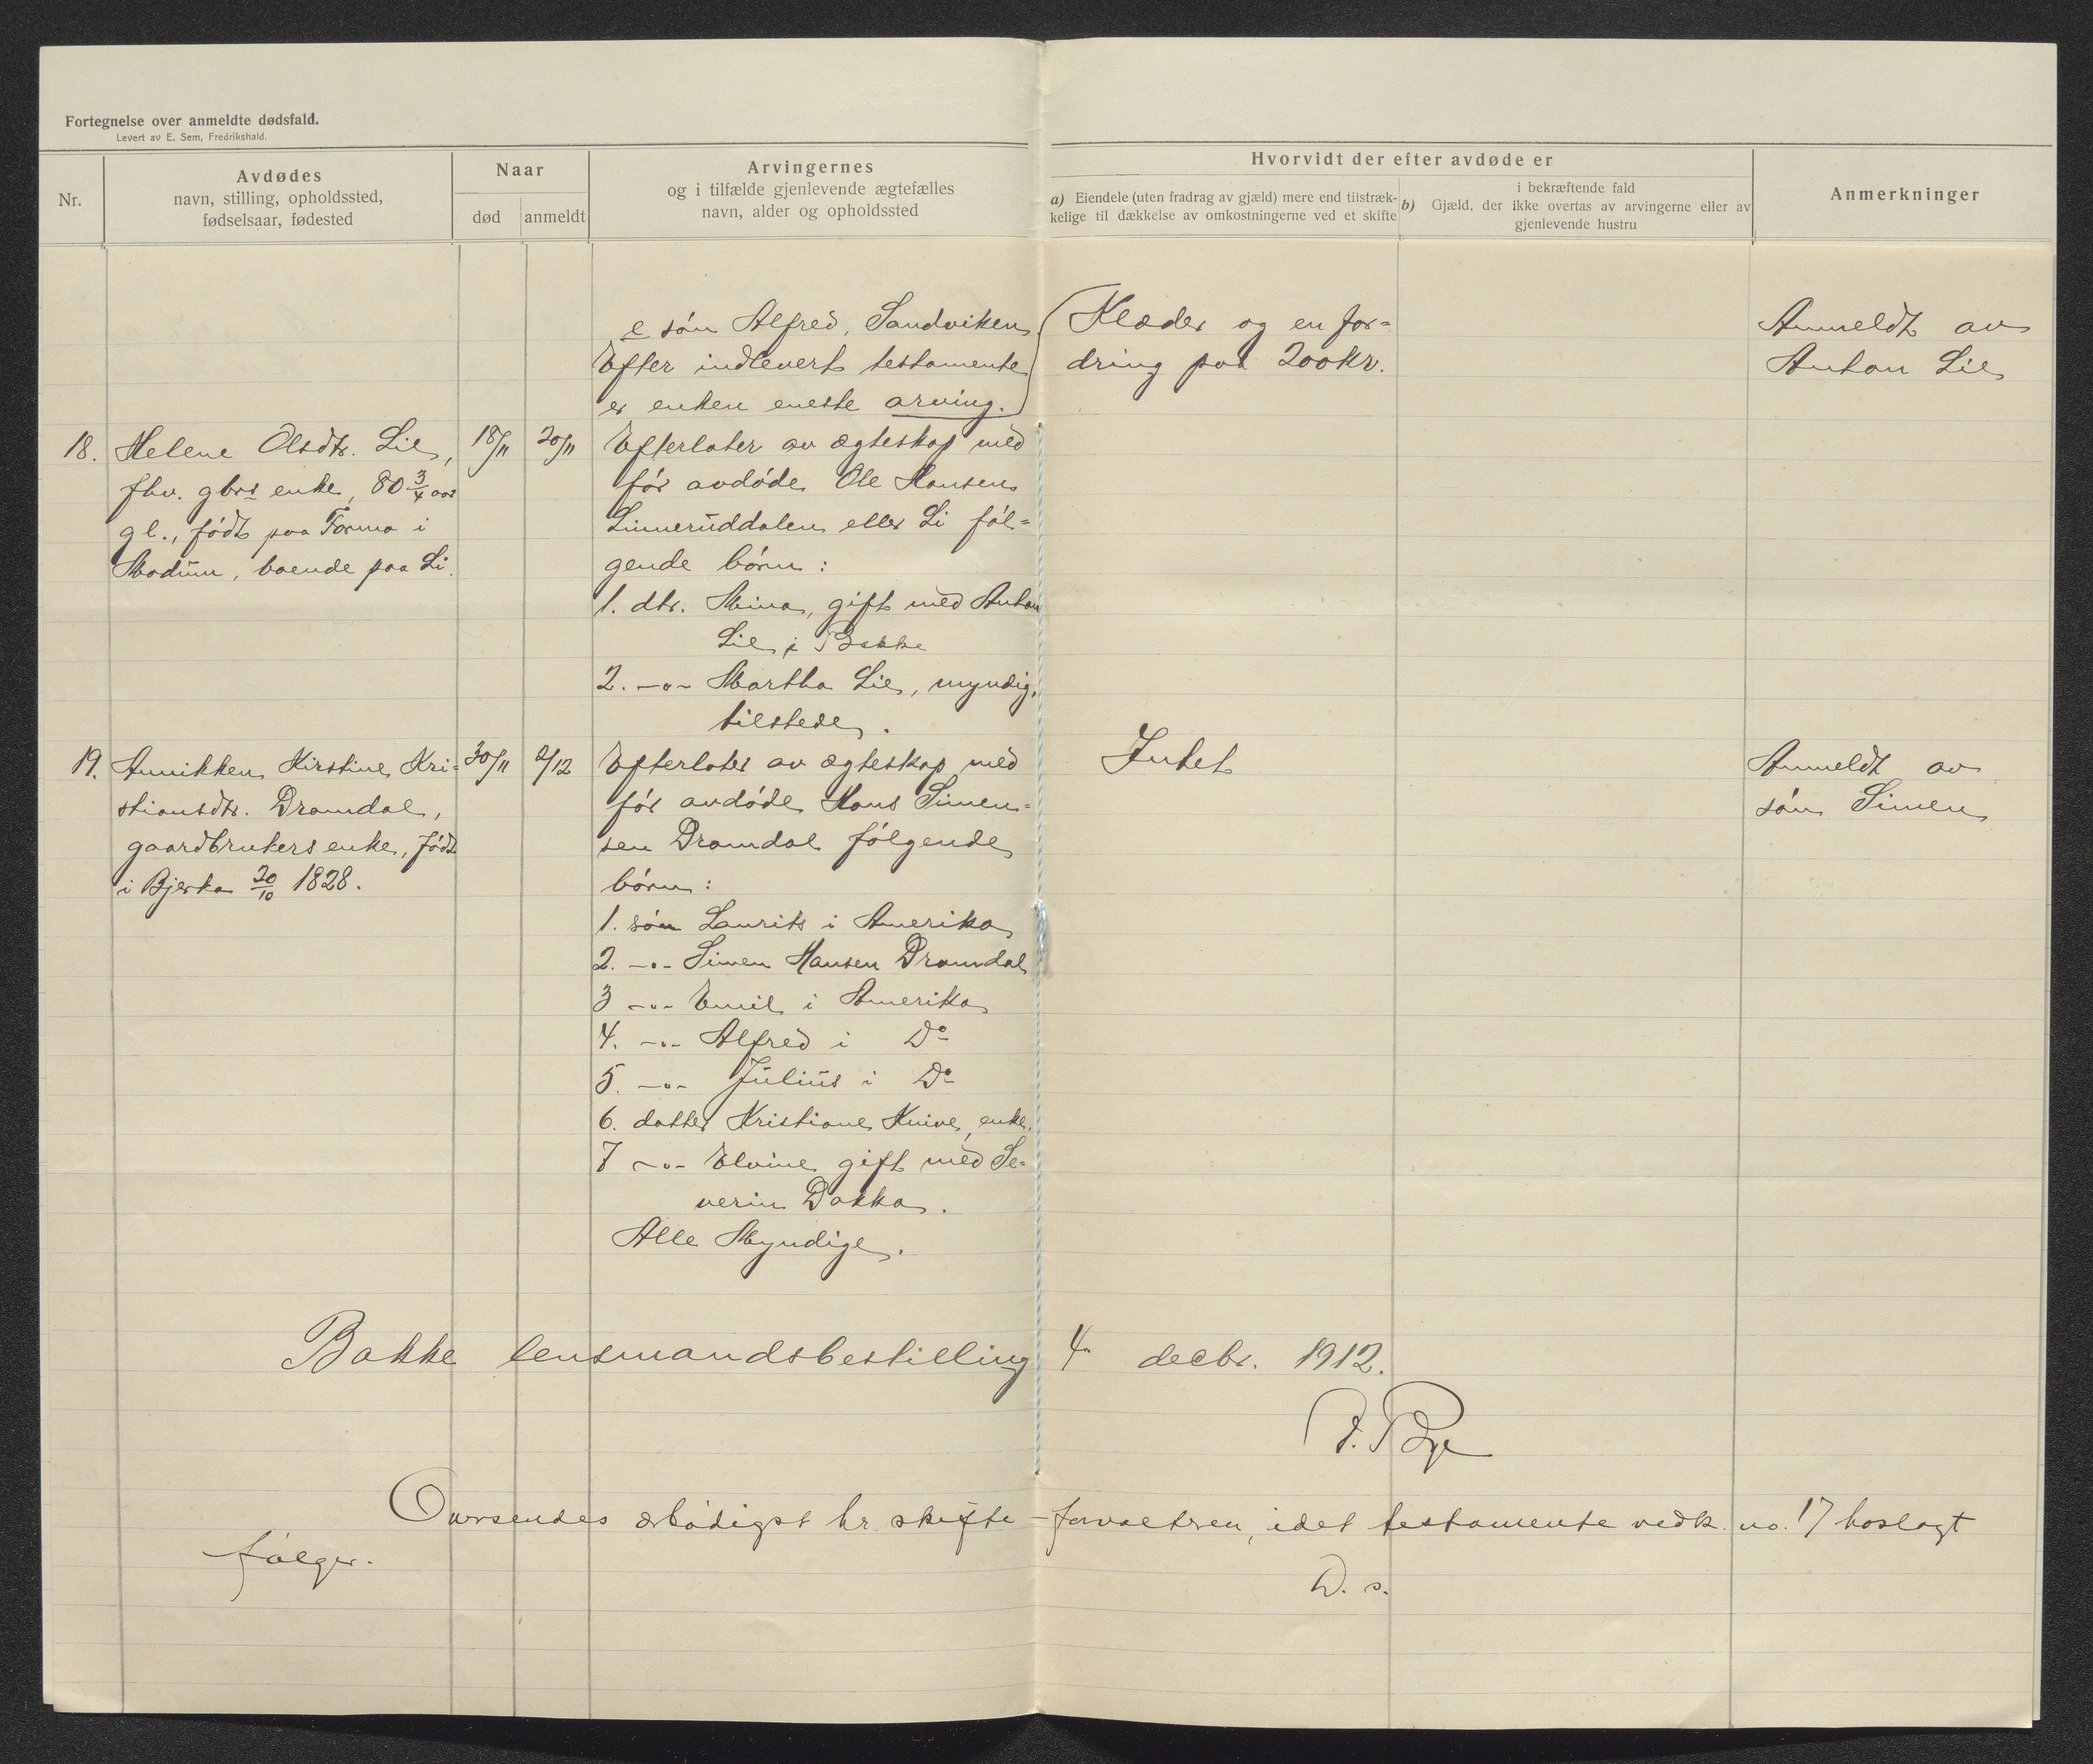 Fortegnelse over anmeldte dødsfald.
Levert av E. Sem, Fredrikshald.
Nr.
Avdødes
navn, stilling, opholdssted,
fødselsaar, fødested
Naar
død
anmeldt
Arvingernes
og i tilfælde gjenlevende ægtefælles
navn, alder og opholdssted
Hvorvidt der efter avdøde er
a) Eiendele (uten fradrag av gjæld) mere end tilstræk-
kelige til dækkelse av omkostningerne ved et skifte
i bekræftende fald
b) Gjæld, der ikke overtas av arvingerne eller av
gjenlevende hustru
Anmerkninger
e søn Alfred, Sandviken
Efter indlevert testamente
er enken eneste arving.
18. Helene Olsdtr. Lie,
fhv. gbrs enke, 80 3/4 aar
gl., født paa Formo i
Modum, boende paa Li.
18/11
20/11
Efterlater av ægteskap med
før avdøde Ole Hansen
Linneruddalen eller Li føl=
gende børn:
1. dtr. Mina, gift med Anton
Lie i Bakke
2. -"- Martha Lie, myndig,
tilstede.
Klæder og en for=
dring paa 200kr.
Anmeldt av
Anton Lie
19. Annikken Kirstine Kri=
stiansdtr. Dramdal,
gaardbrukers enke, født
i Bjerka 20/10 1828.
30/11
2/12
Efterlater av ægteskap med
før avdøde Hans Simen=
sen Dramdal følgende
børn:
1. søn Laurits i Amerika
2. -"- Simen Hansen Dramdal
3 -"- Emil i Amerika
4. -"- Alfred i Do
5. -"- Julius i Do
6. datter Kristiane Knive, enke.
7 -"- Elvine gift med Se=
verin Dakka.
Alle Myndige.
Intet
Anmeldt av
søn Simen
Bakke lensmandsbestilling 4. decbr. 1912.
Bye
Oversendes ærbødigst hr. skifte-forvalteren, idet testamente vedk. no. 17 hoslagt
følger.
D. s.